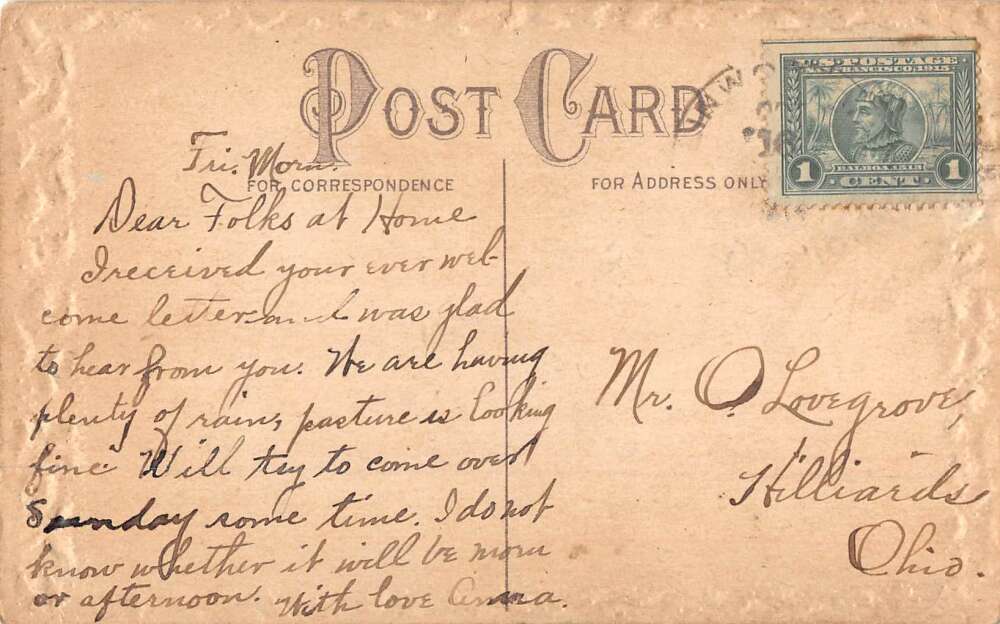 POST CARD
U·S·POSTAGE
SAN FRANCISCO, 1915
BALBOA, 1513
1 CENT 1
Fri. Morn.
FOR CORRESPONDENCE
Dear Folks at Home
I received your ever wel-
come letter and I was glad
to hear from you. We are having
plenty of rain, pasture is looking
fine Will try to come over
Sunday some time. I do not
know whether it will be morn
or afternoon. With love Anna.
FOR ADDRESS ONLY
Mr. O. Lovegrove,
Hilliards
Ohio.